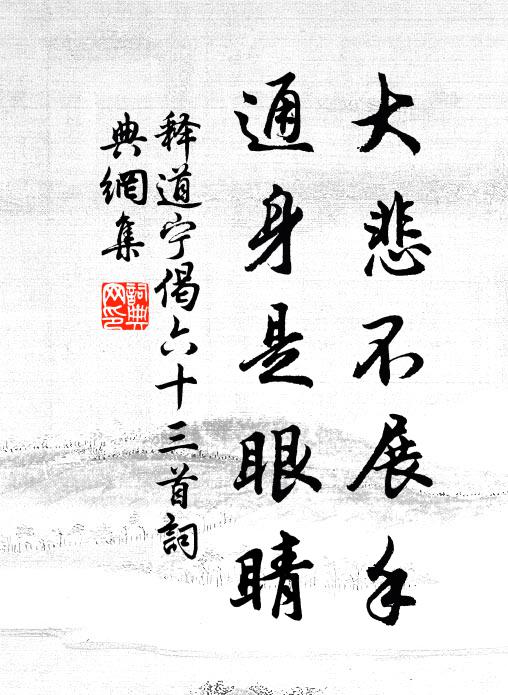 大悲不展手
通身是眼睛
释道宁偈六十三首詞
典網集
詞典
网印